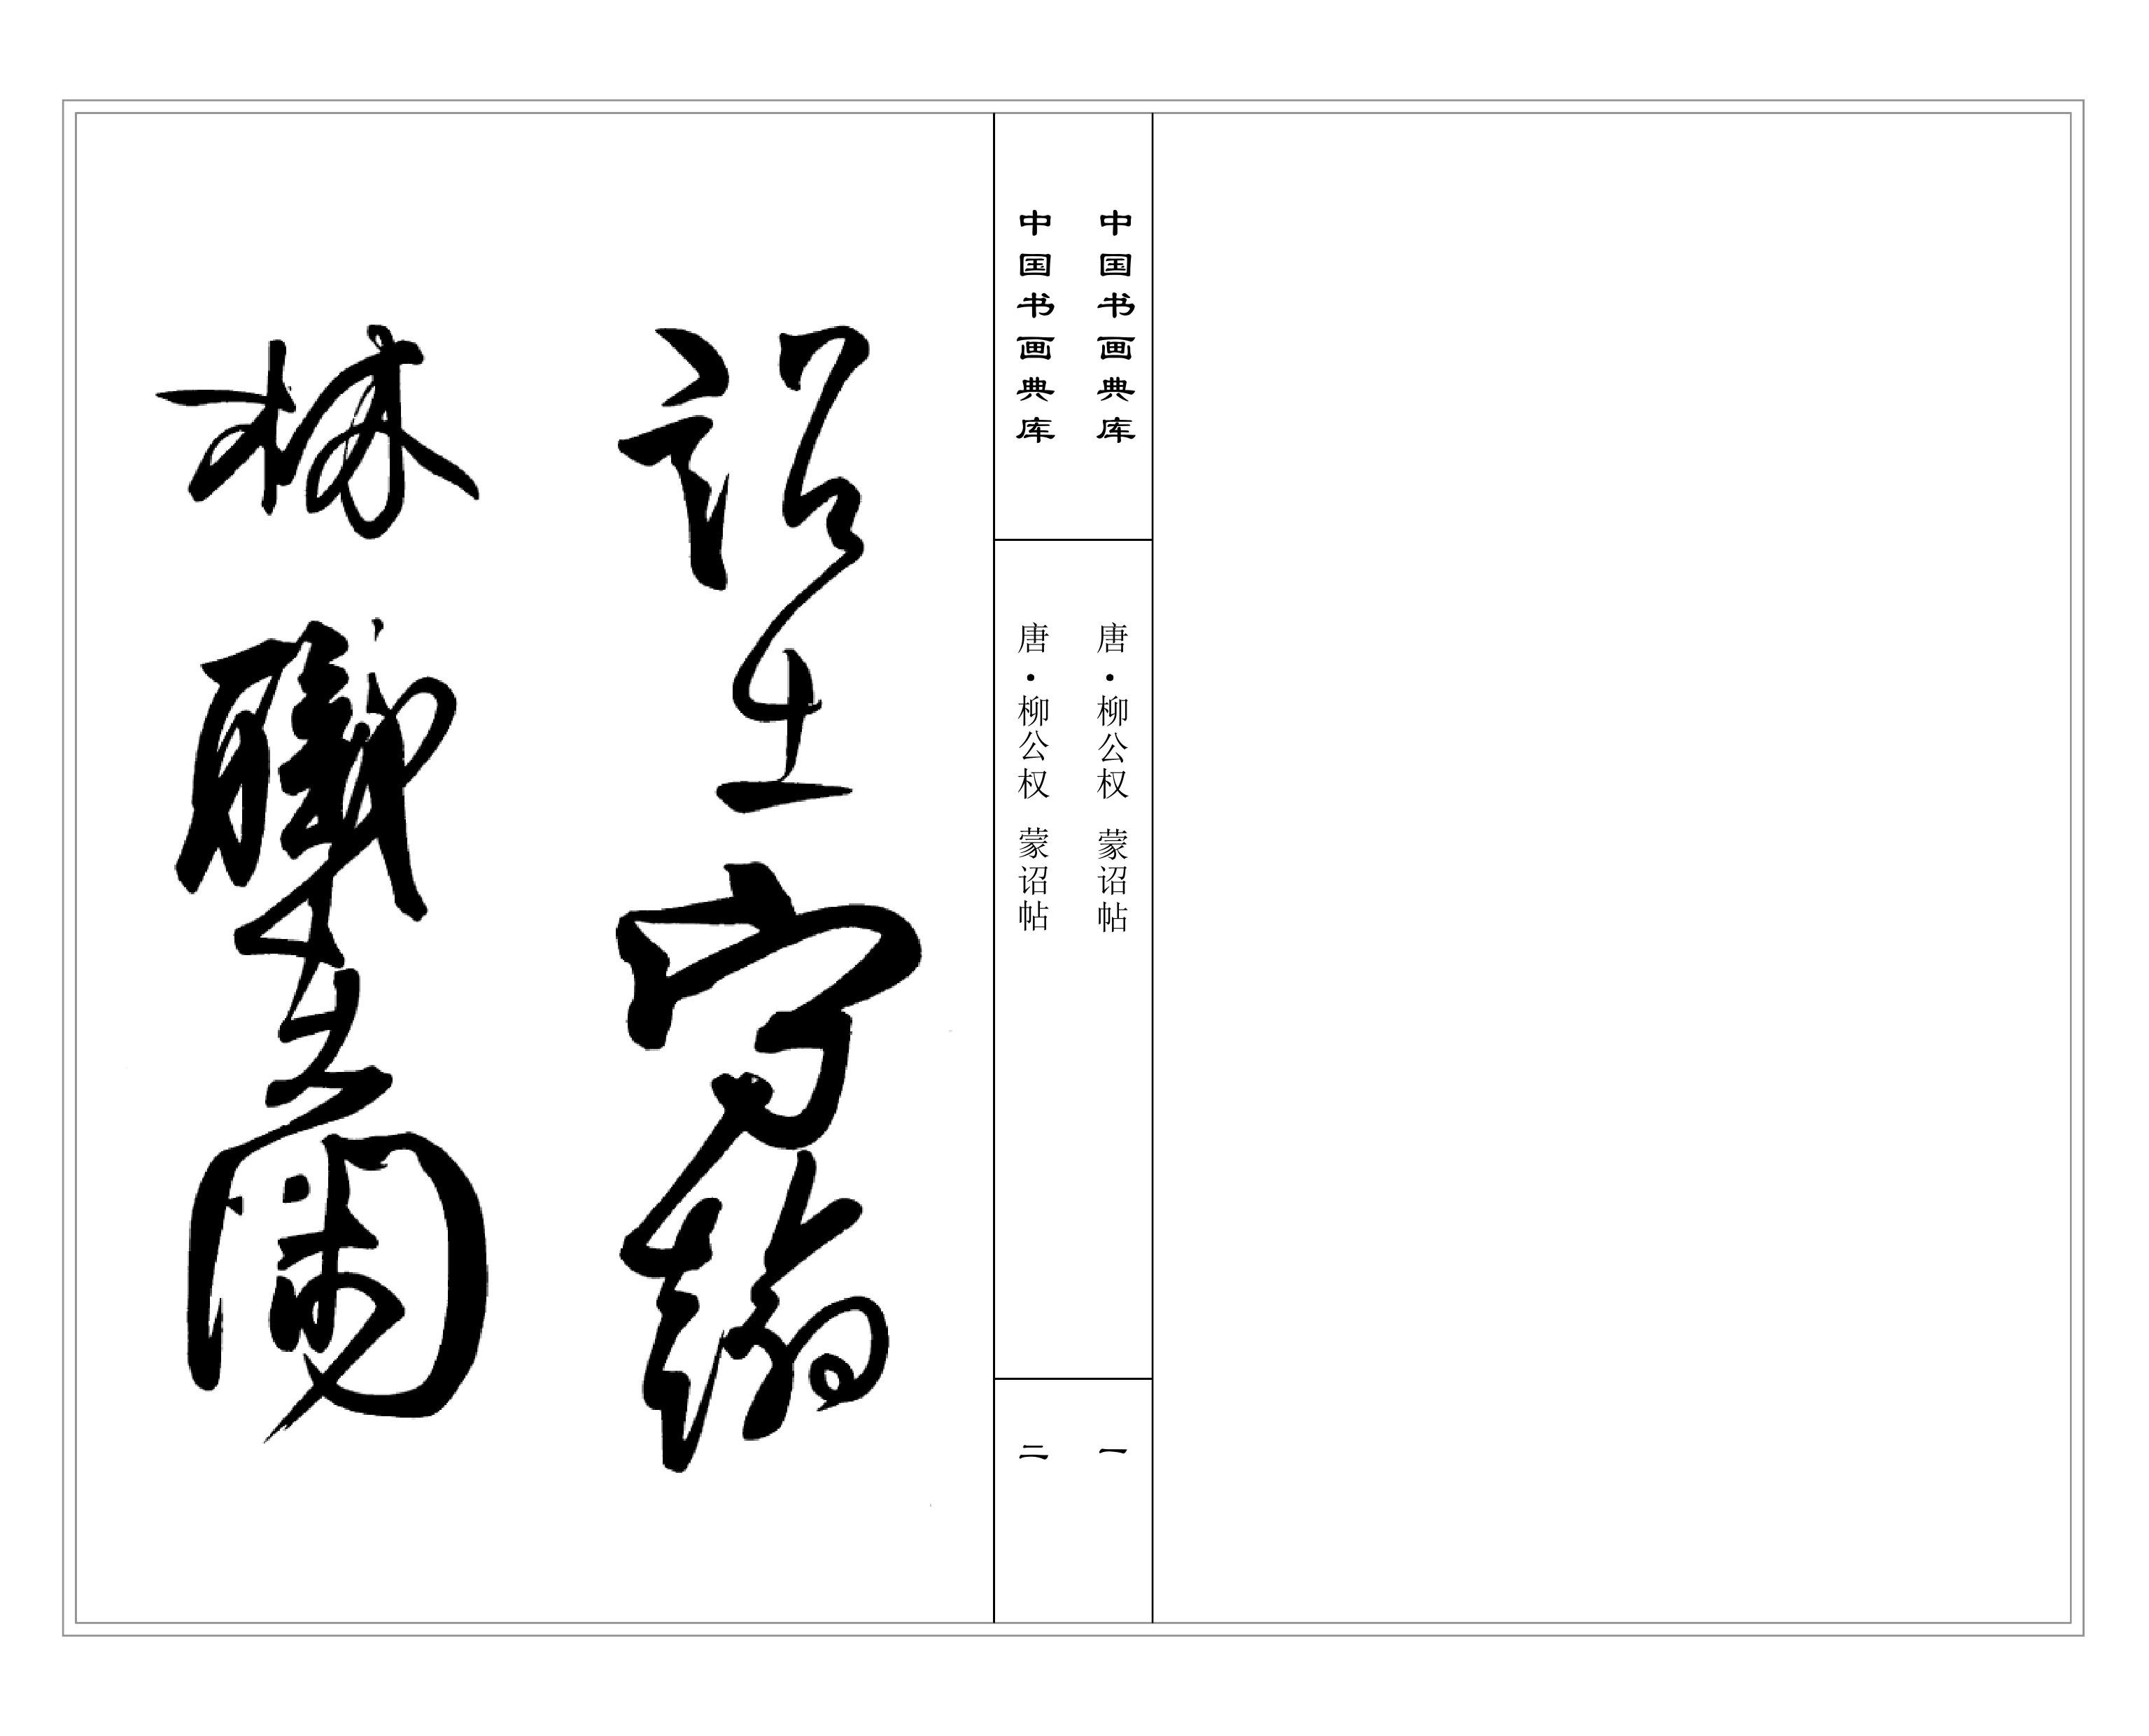 中国书画典库
唐·柳公权 蒙诏帖
一
中国书画典库
唐·柳公权 蒙诏帖
二
詔出守翰
林職在閑